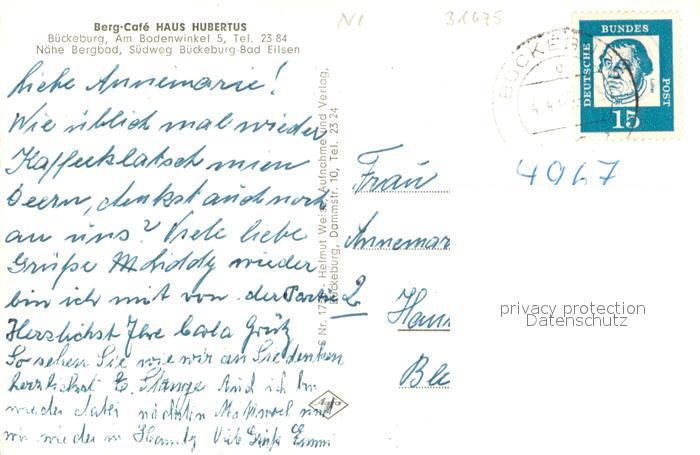 Berg-Café HAUS HUBERTUS
Bückeburg, Am Bodenwinkel 5, Tel. 23 84
Nähe Bergbad, Südweg Bückeburg-Bad Eilsen
N1
31675
Liebe Annemarie!
Wie üblich mal wieder
Kaffeeklatsch mien
Deern, denkst auch noch
an uns? Viele liebe
Grüße Liddy wieder
bin ich mit von der Partie
Herzlichst Ihre Carla
So sehen Sie wie wir an Sie denken
herzlichst E. Stange Auch ich bin
wieder dabei nächsten Mal noch
wir wieder in Viele Grüße Emmi
Nr. Helmut Weise, Aufnahme und Verlag,
Bückeburg, Dammstr. 10, Tel. 23 24
Agfa
DEUTSCHE BUNDES POST
15
BÜCKEBURG
4967
Frau
Annemar
2
Hann
Ble
privacy protection
Datenschutz